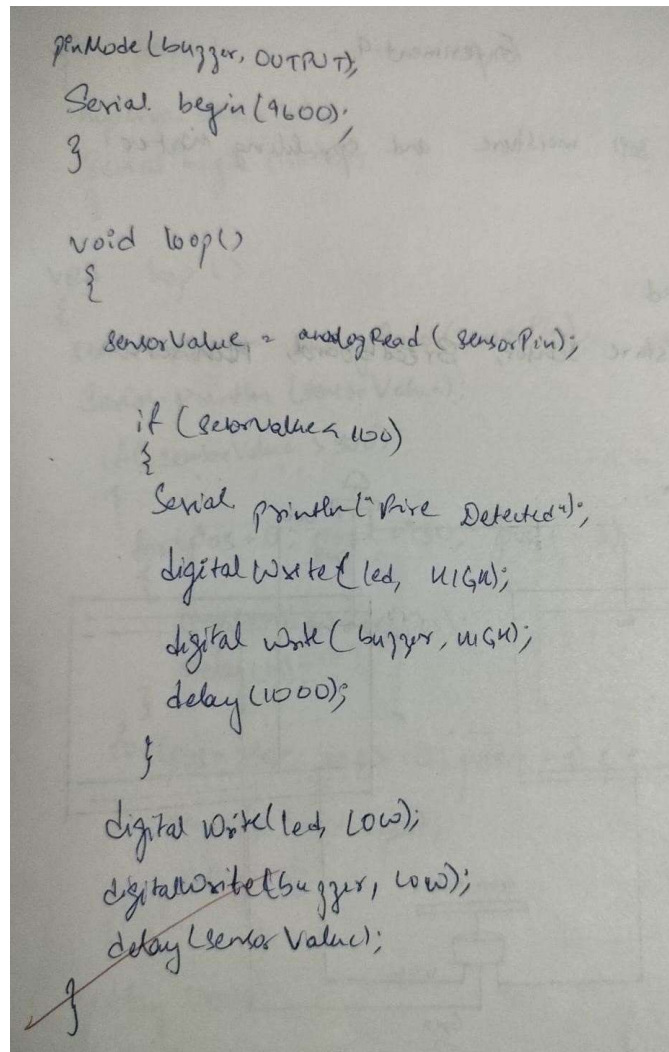 pinMode(buzzer, OUTPUT);
Serial. begin(9600);
}
void loop()
{
sensorValue = analogRead(sensorPin);
if (sesorvalue < 100)
{
Serial println("Fire Detected");
digitalWrite(led, HIGH);
digital write(buzzer, HIGH);
delay(1000);
}
digital Write(led, LOW);
digitalWrite(buzzer, LOW);
delay(sensorValue);
}